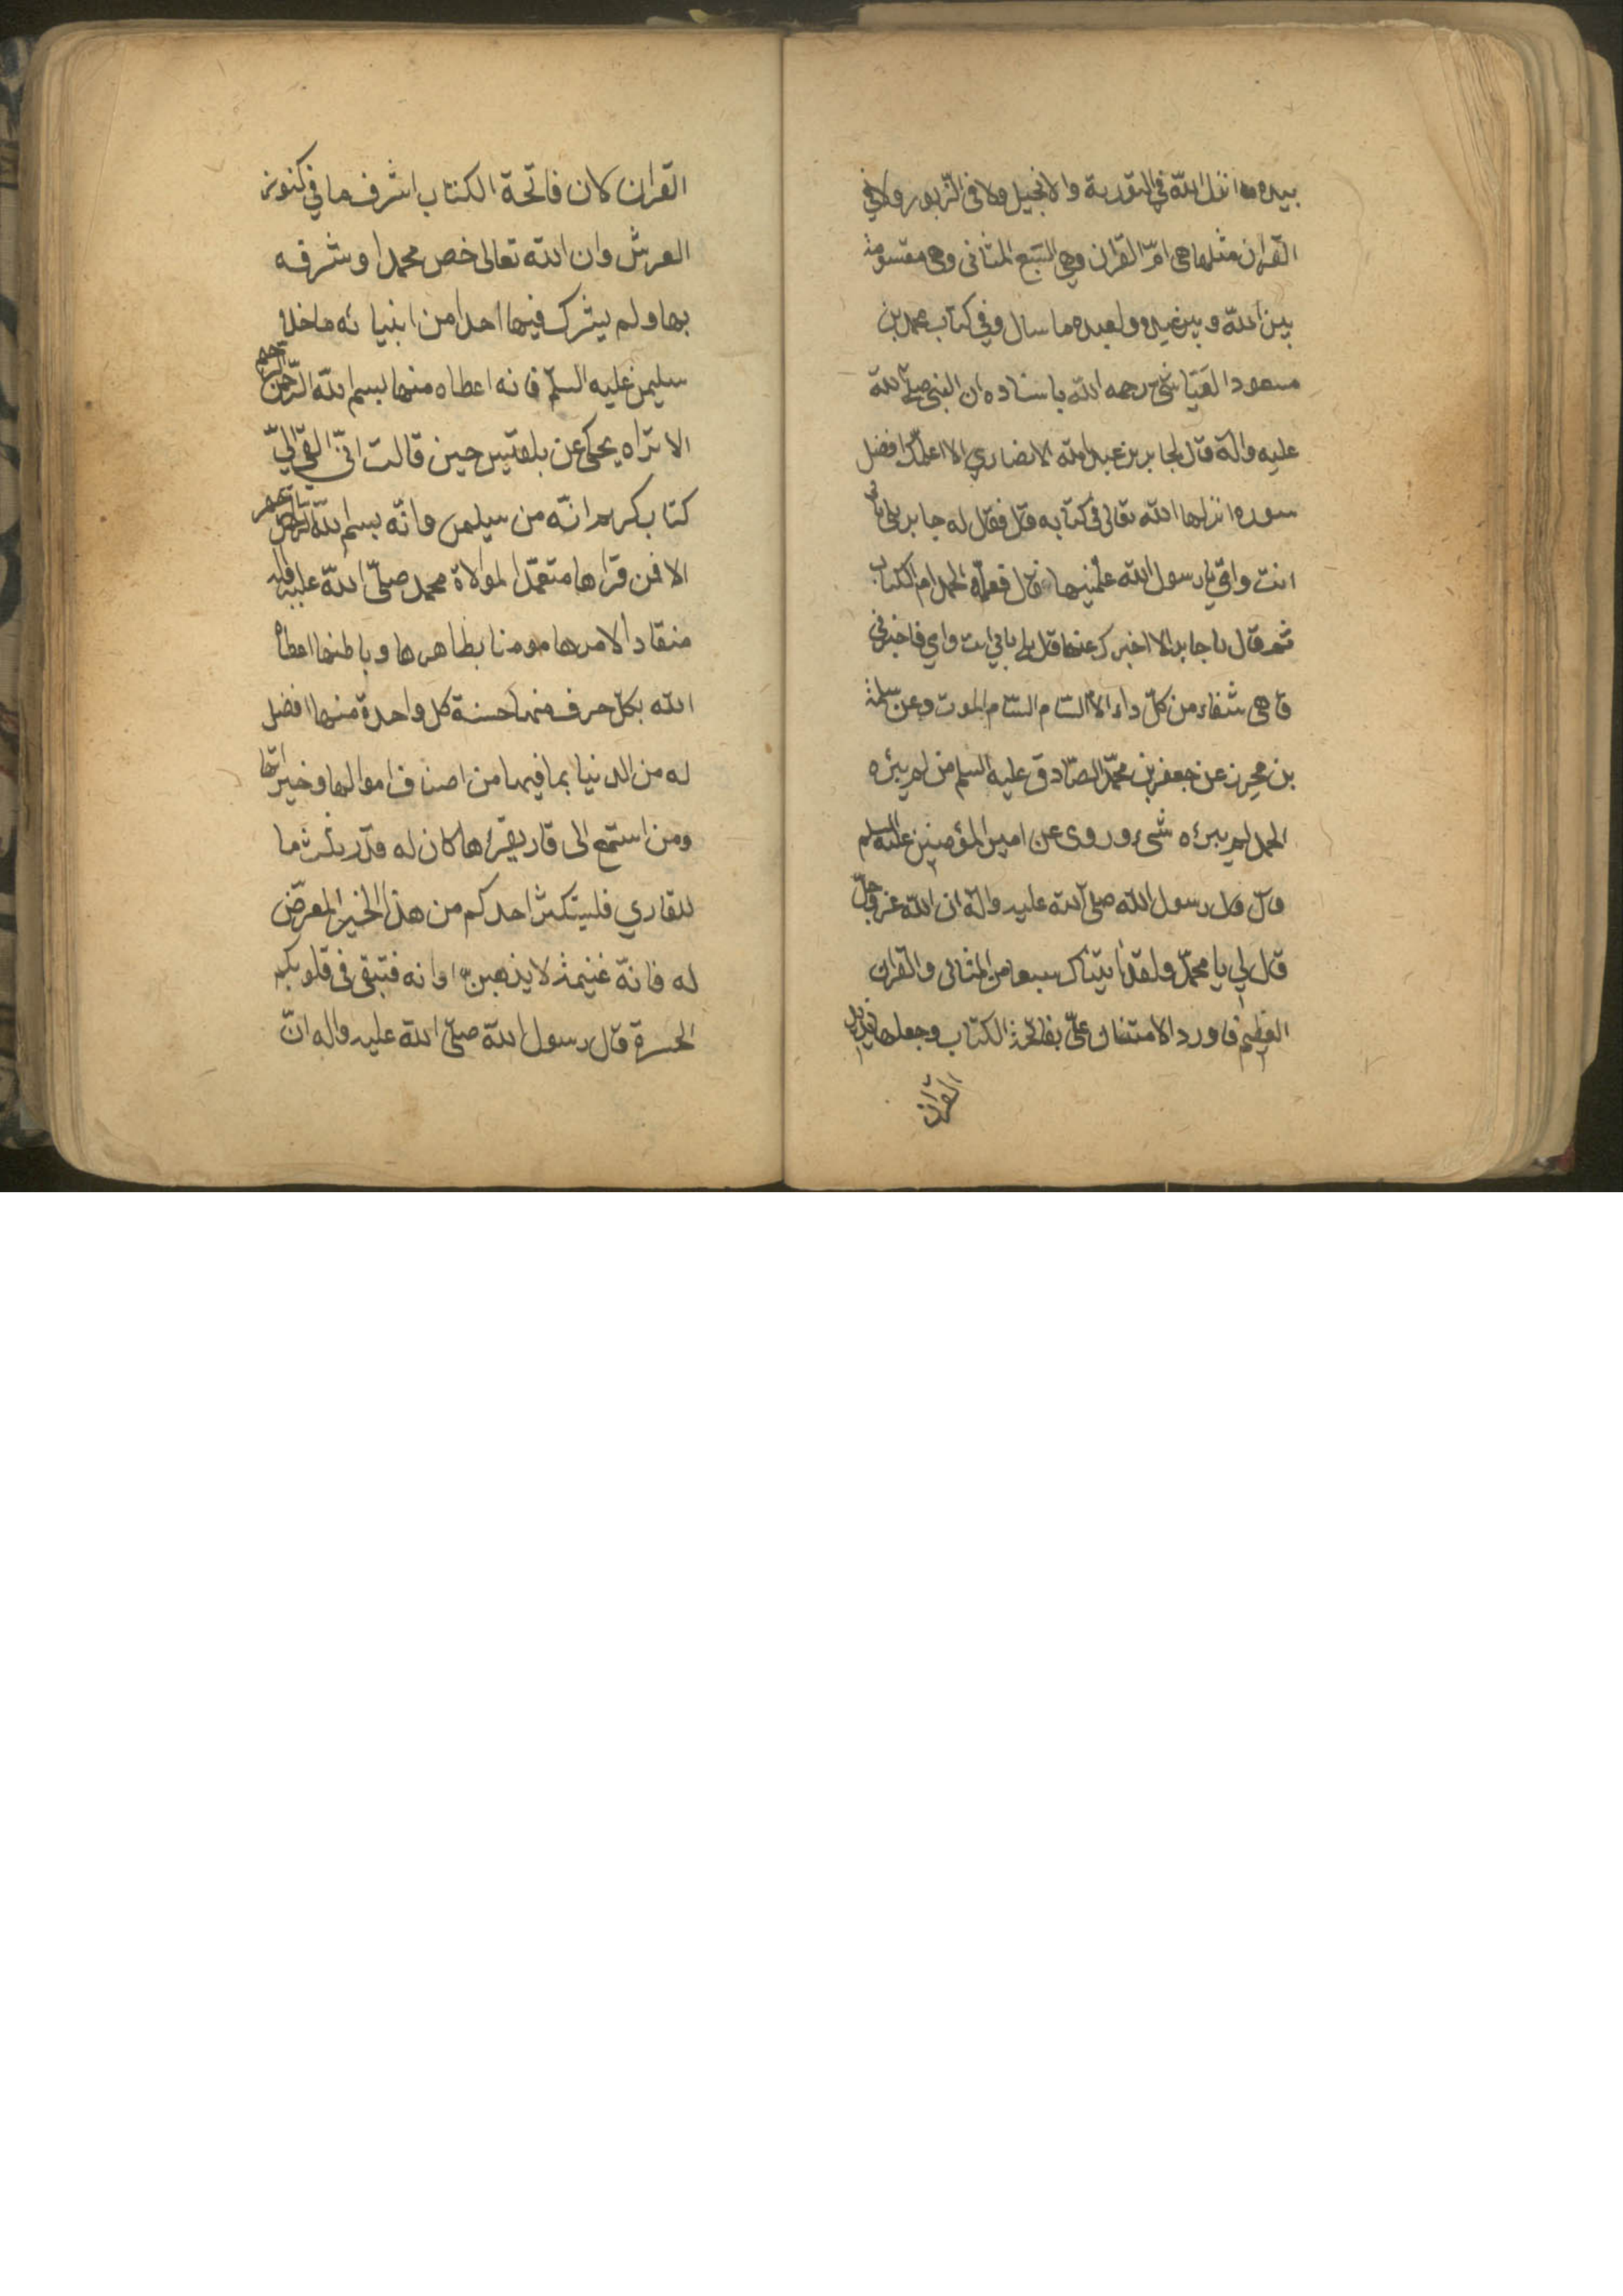 بيده ما انزل الله في التورية والانجيل ولا في الزبور ولا في
القران مثلها هي امّ القران وهي السبع المثاني وهي مقسومة
بين الله وبين عبده ولعبده ما سال وفي كتاب محمد بن
مسعود العيّاشي رحمه الله باسناده ان النبي صلى الله
عليه واله قال لجابر بن عبد الله الانصاري الا اعلّمك افضل
سورة انزلها الله تعالى في كتابه قال فقال له جابر بلى بابي
انت وامّي يا رسول الله علّمنيها قال فعلّمه الحمد ام الكتاب
ثم قال يا جابر الا اخبرك عنها قال بلى بابي انت وامي فاخبرني
قا هي شفاء من كلّ داء الّا السّام السّام الموت وعن سلمة
بن محرز عن جعفر بن محمّد الصّادق عليه السلم من لم يبرئه
الحمد لم يبرئه شيء وروى عن امير المؤمنين عليه السلم
قال قال رسول الله صلى الله عليه واله ان الله عز وجلّ
قال لي يا محمّد ولقد اتيناك سبعا من المثاني والقران
العظيم فاورد الامتنان عليّ بفاتحة الكتاب وجعلها بازاء
القران
القران كان فاتحة الكتاب اشرف ما في كنوز
العرش وان الله تعالى خص محمدا وشرفه
بها ولم يشرك فيها احدا من انبيائه ما خلا
سليمن عليه السلم فانه اعطاه منها بسم الله الرّحمن الرحيم
الا تراه يحكي عن بلقيس حين قالت انّي القي اليّ
كتاب كريم انّه من سليمن وانّه بسم الله الرحمن الرحيم
الا فمن قراها متعمّدا لموالاة محمد صلّى الله عليه واله
منقادا لامرها مومنا بظاهرها وباطنها اعطاه
الله بكلّ حرف منها حسنة كل واحدة منها افضل
له من الدنيا بما فيها من اصناف اموالها وخيراتها
ومن استمع الى قار يقرءها كان له قدر ثلث ما
للقاري فليستكثر احدكم من هذا الخير المعرّض
له فانّه غنيمة لا يذهبنّ اوانه فتبقى في قلوبكم
الحسرة قال رسول الله صلّى الله عليه واله انّ